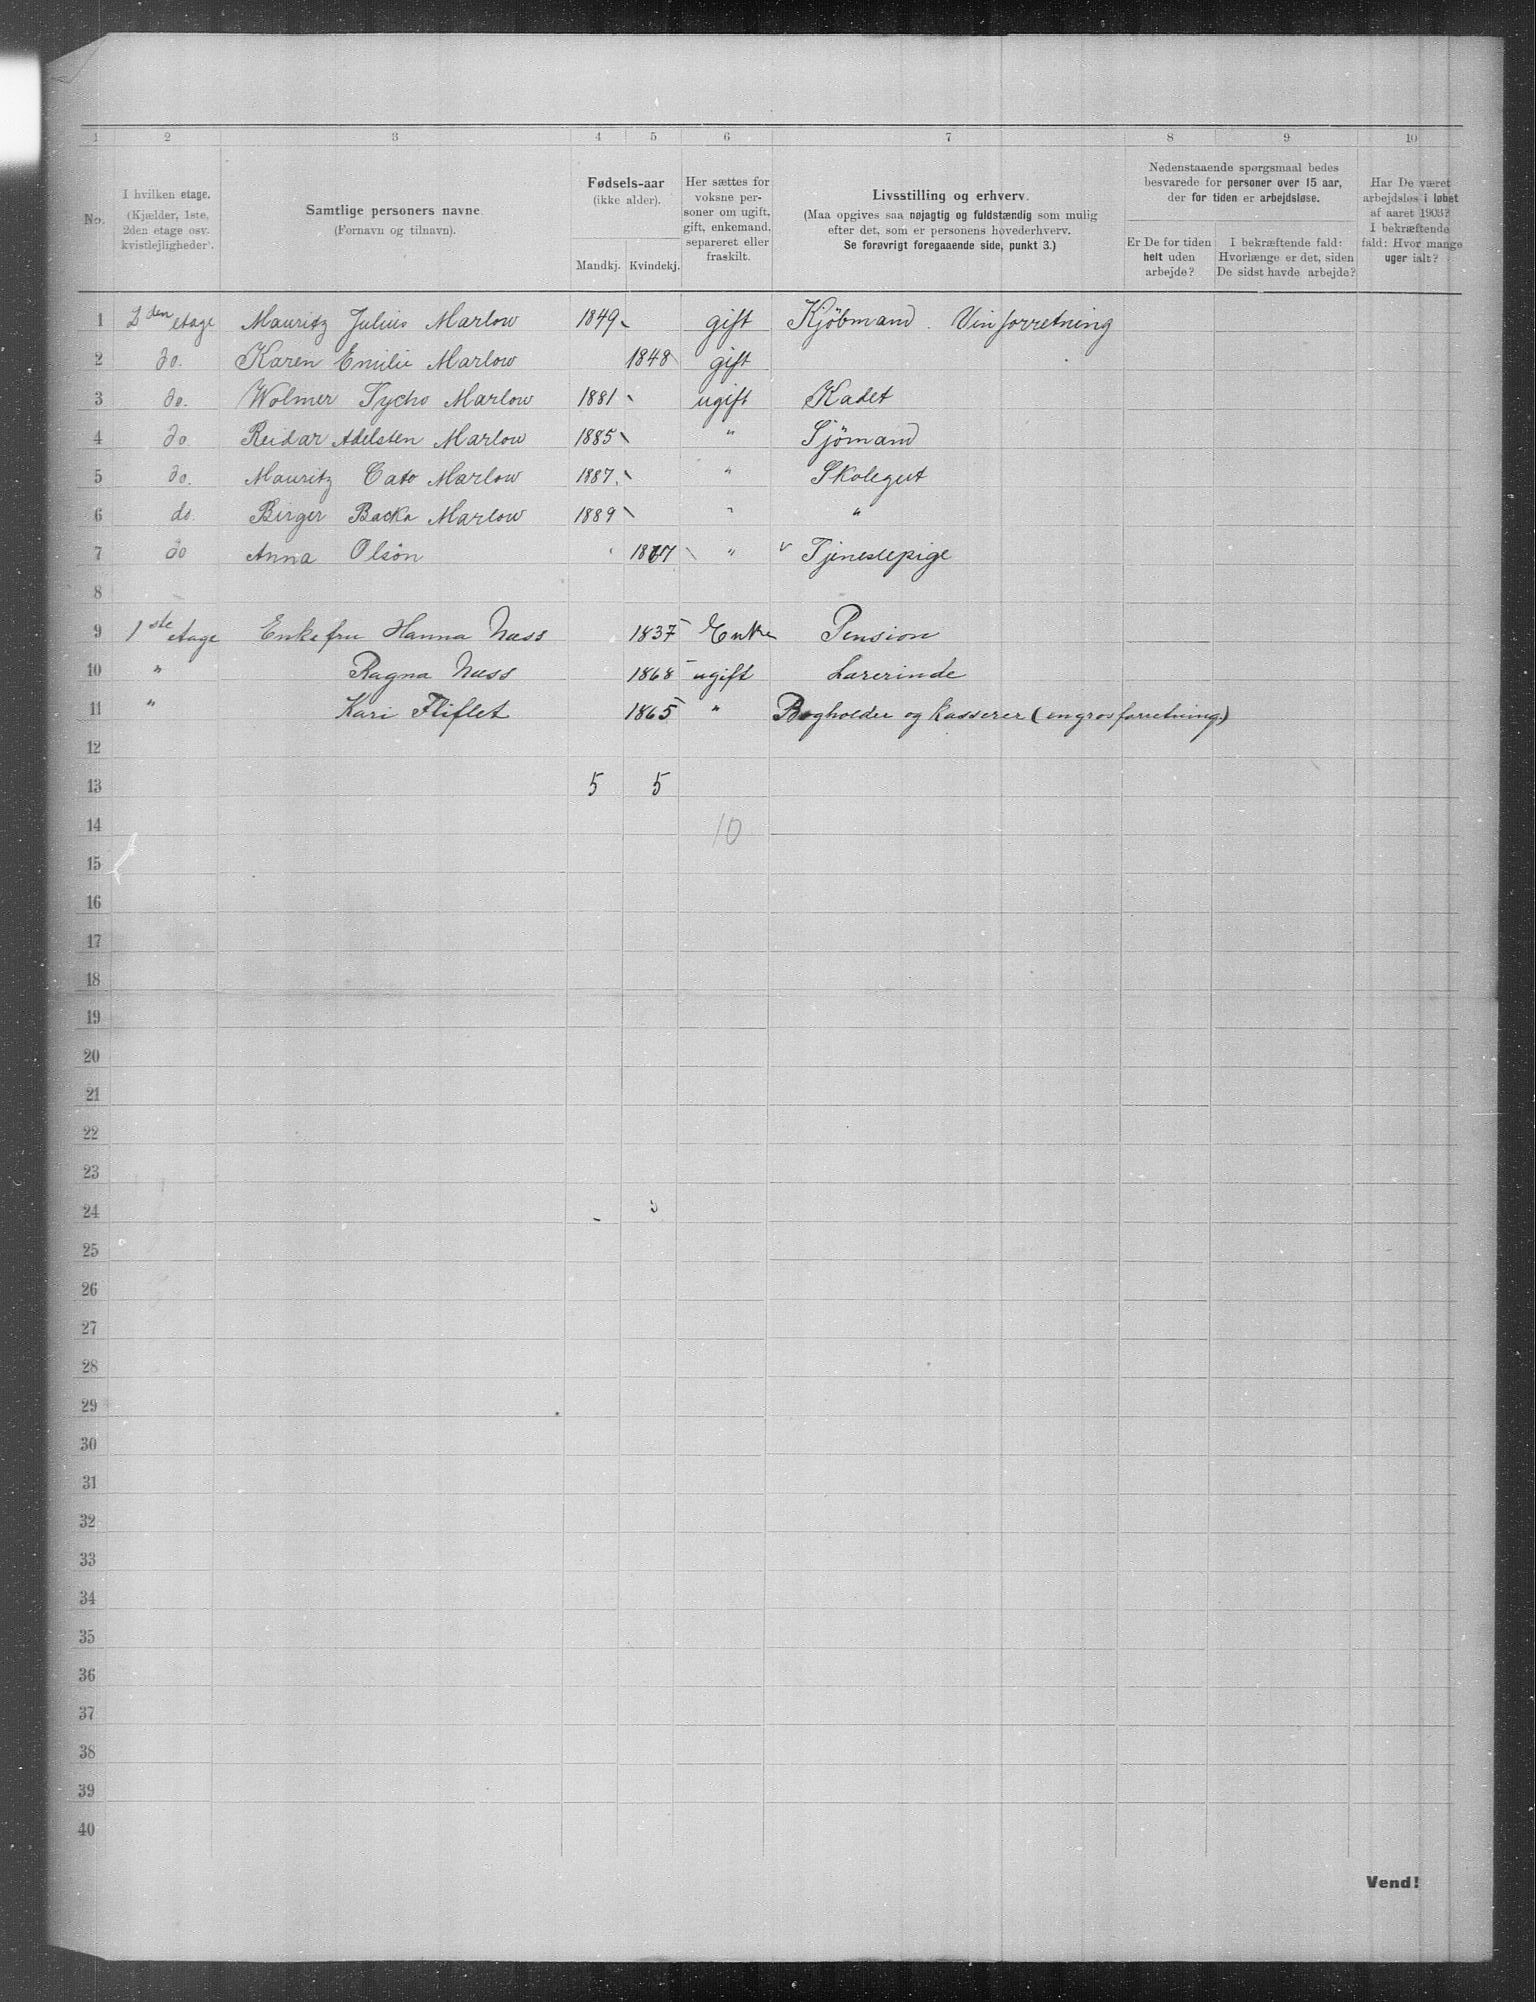 1 2 3 4 5 6 7 8 9 10
No.
I hvilken etage. (Kjælder, 1ste, 2den etage osv. kvistlejligheder).
Samtlige personers navne. (Fornavn og tilnavn).
Fødsels-aar (ikke alder).
Mandkj. Kvindekj.
Her sættes for voksne personer om ugift, gift, enkemand, separeret eller fraskilt.
Livsstilling og erhverv.
(Maa opgives saa nøjagtig og fuldstændig som mulig efter det, som er personens hovederhverv. Se forøvrigt foregaaende side, punkt 3.)
Nedenstaaende spørgsmaal bedes besvarede for personer over 15 aar, der for tiden er arbejdsløse.
Er De for tiden helt uden arbejde?
I bekræftende fald: Hvorlænge er det, siden De sidst havde arbejde?
Har De været arbejdsløs i løbet af aaret 1903? I bekræftende fald: Hvor mange uger ialt?
1 2den etage Mauritz Julius Marlow 1849 gift Kjöbmand. Vinforretning
2 do. Karen Emilie Marlow 1848 gift
3 do. Wolmer Tycho Marlow 1881 ugift Kadet
4 do. Reidar Adelsten Marlow 1885 " Sjömand
5 do. Mauritz Cato Marlow 1887 " Skolegut
6 do. Birger Backa Marlow 1889 " "
7 do Anna Olsön " Tjenestepige
8
9 1ste etage Enkefru Hanna Næss 1837 Enke Pension
10 " Ragna Næss 1868 ugift Lærerinde
11 " Kari Fliflet 1865 " Bogholder og kasserer (engrosforretning)
12
13 5 5
14 10
15
16
17
18
19
20
21
22
23
24
25
26
27
28
29
30
31
32
33
34
35
36
37
38
39
40
Vend!